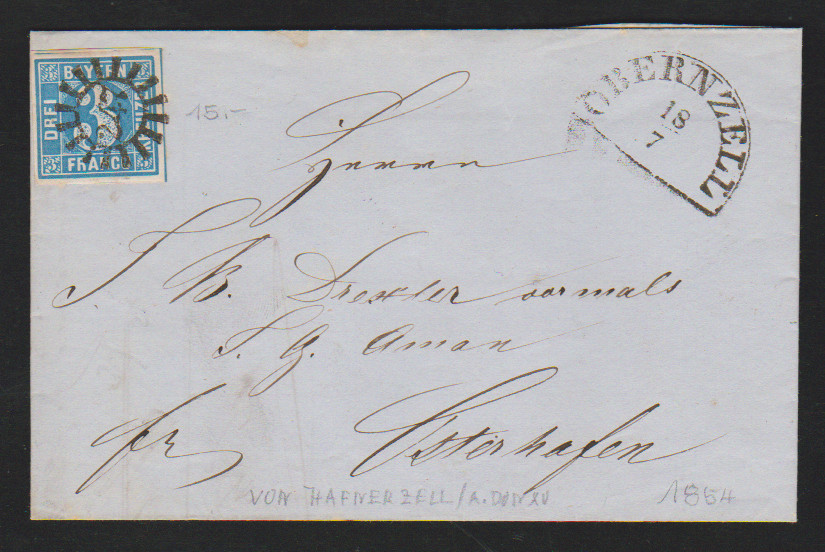 BAYERN
DREI
3
KREUZER
FRANCO
15.-
OBERNZELL
18
7
Herrn
J. B. Drexler vormals
J. G. Aman
fr Osterhofen
VON HAFNERZELL/A. DONAU
1854